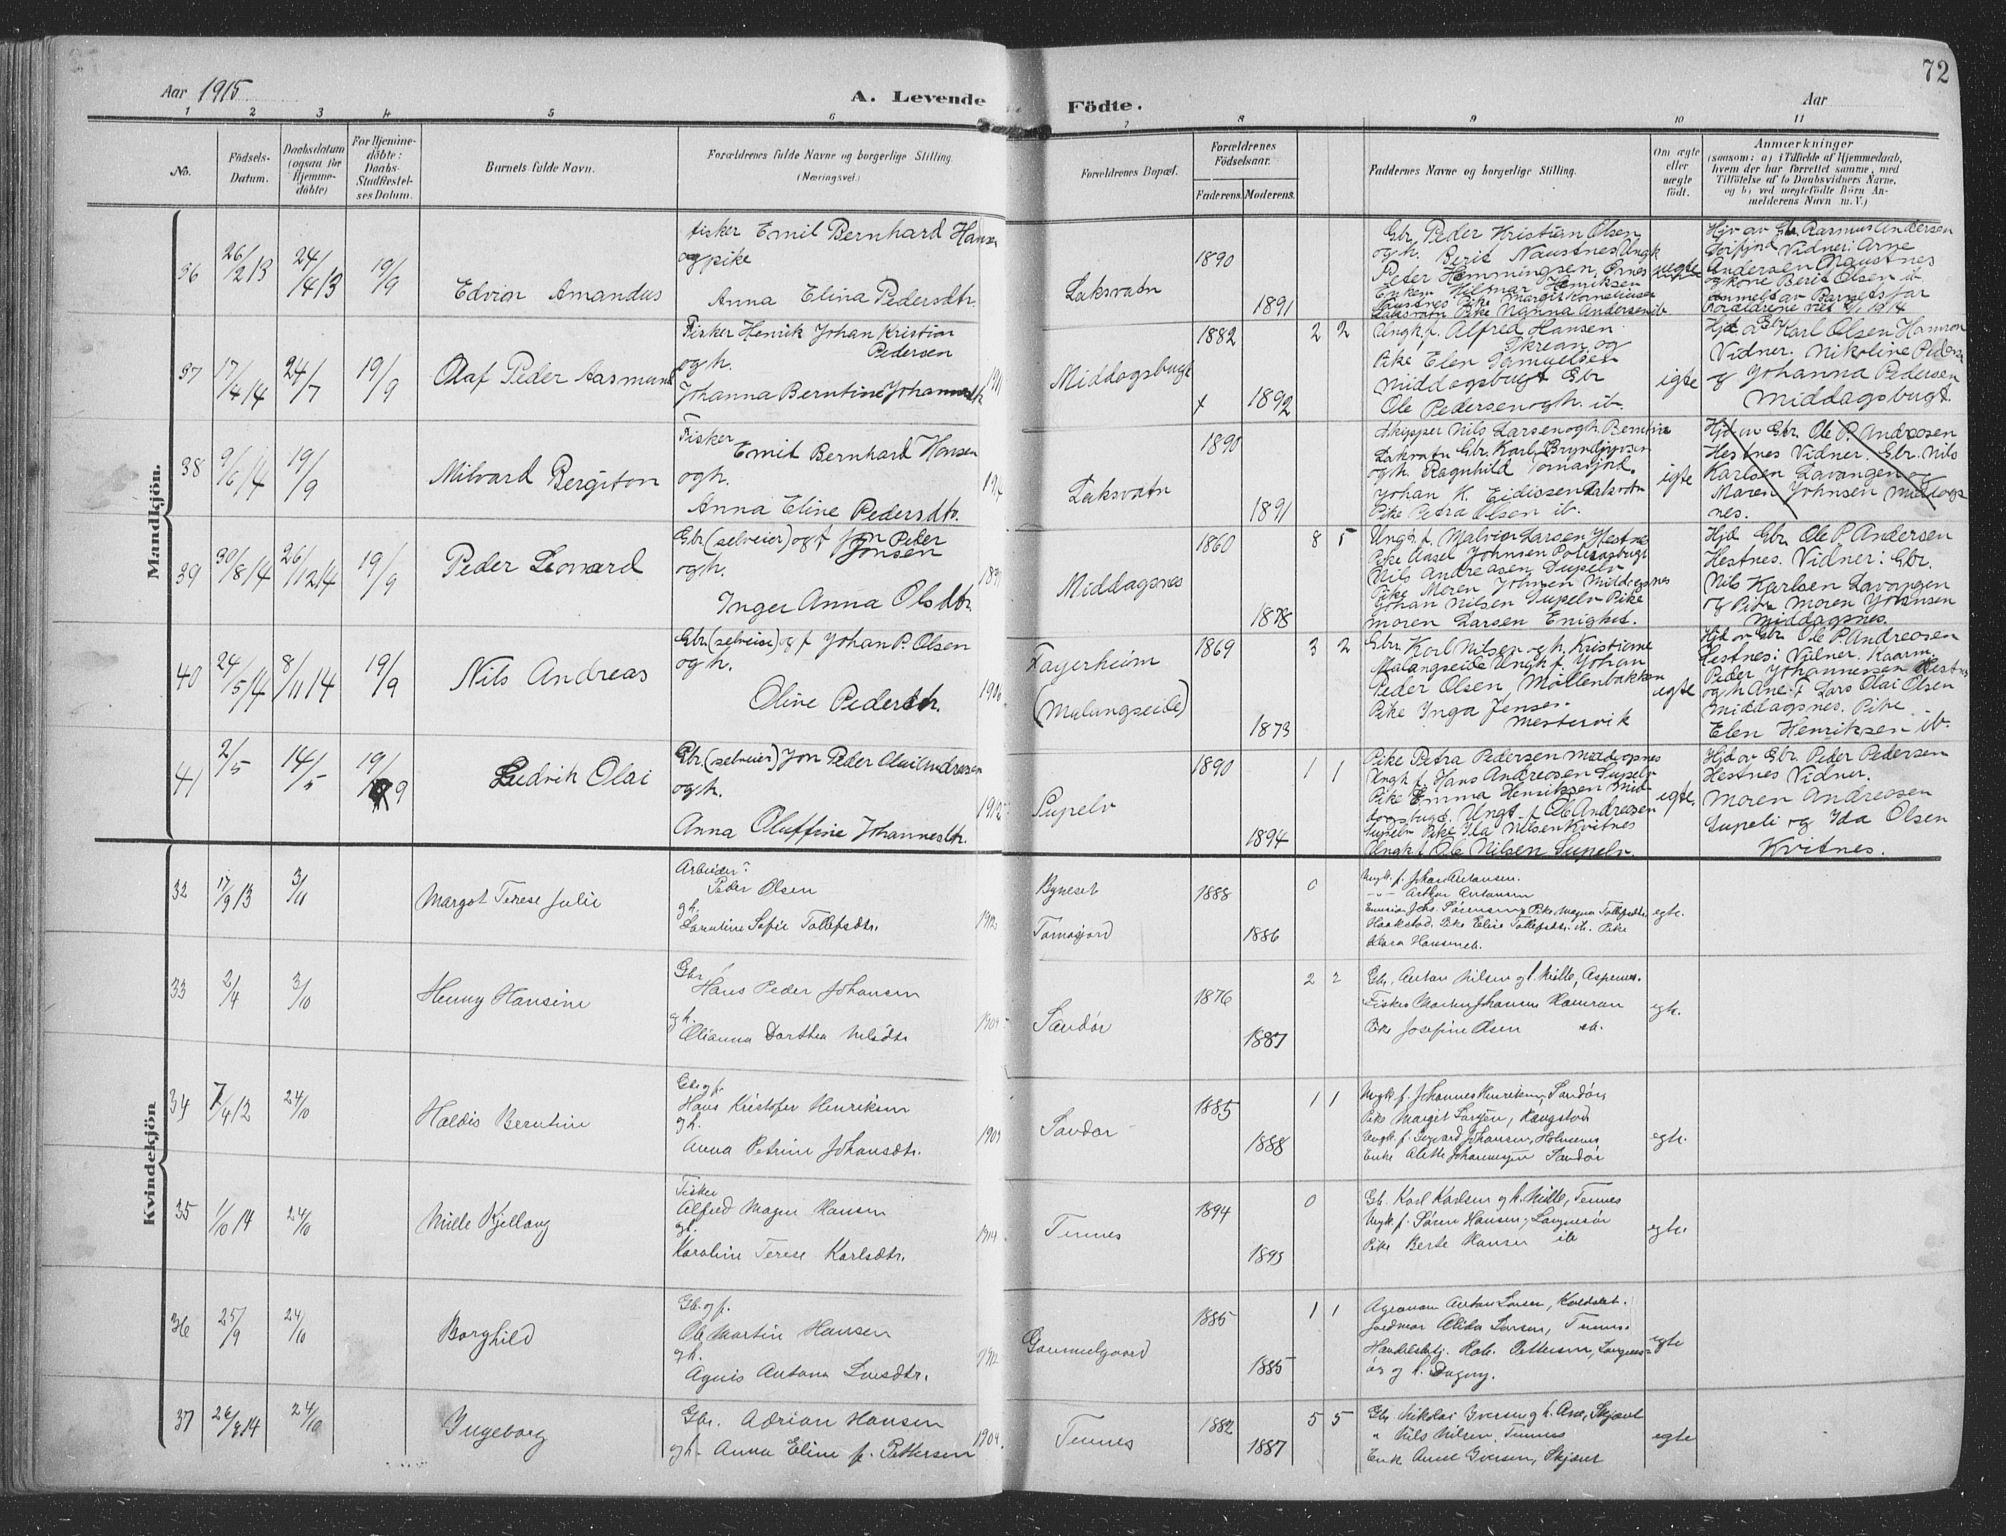 72
Aar 1915
A. Levende Födte.
Aar
1 2 3 4 5 6 7 8 9 10 11
No.
Födsels-Datum.
Daabsdatum (ogsaa for Hjemme-döbte)
For Hjemme-döbte: Daabs-Stadfæstel-ses Datum.
Barnets fulde Navn.
Forældrenes fulde Navne og borgerlige Stilling.
(Næringsvei.)
Forældrenes Bopæl.
Forældrenes Födselsaar.
Faderens. Moderens.
Faddernes Navne og borgerlige Stilling.
Om ægte eller uægte födt.
Anmærkninger
(saasom: a) i Tilfælde af Hjemmedaab, hvem der har forrettet samme, med Tilföielse af to Daabsvidners Navne, og b) ved uægtefödte Börn An-melderens Navn m. V.)
Mandkjön.
36 26/2 13 24/4 13 19/9 Edvin Amandus
fisker Emil Bernhard Hansen
og pike
Anna Elina Pedersdtr.
Laksvatn
1890
1891
Gbr Peder Kristian Olsen
og h. Berit Naustnes Ungk
Peder Hemmingsen
Enkem Hilmar Henriksen
Naustnes Pike Margit Korneliusen
Laksvatn Pike Nanna Andersen ib
uegte
Hjv av Gbr. Rasmus Andersen
Vidner: Arne
Andersen Naustnes
og kone Berit Olsen ib
anmeldt av Barnets far
Forældrene viet 1914
37 17/4 14 24/7 19/9 Olaf Peder Aasmund
Fisker Henrik Johan Kristian
Pedersen
og h.
Johanna Berntine Johannesdtr
Middagsbugt
1882
1892
2 2
Ungk. f. Alfred Hansen
Skrean og
Pike Elen Samuelsen
Middagsbugt Gbr
Ole Pedersen og h. ib.
egte
Hjd a Gbr Karl Olsen Hamran
Vidner. Nikoline Peders
og Johanna Pedersen
Middagsbugt.
38 9/6 14 19/9 Milvard Bergiton
Fisker
Emil Bernhard Hansen
og h.
Anna Eline Pedersdtr.
Laksvatn
1890
1891
Skipper Nils Larsen og h. Berntine
Laksvatn Gbr. Karl Bryndjulvsen
og h. Ragnhild Tomasjord.
Johan K. Eidissen Laksvatn
Pike Petra Olsen ib.
egte
Hjd av Gbr. Ole P. Andreasen
Hestnes Vidner. Gbr. Nils
Karlsen Lavangen og
Maren Johnsen Middags
nes.
39 30/8 14 26/12 14 19/9 Peder Leonard
Gbr (selveier) og f Jon Peder
Jonsen
og h.
Inger Anna Olsdtr.
Middagsnes
1860
1878
8 5
Ungk f. Malvin Larsen Hestnes
Pike Aasel Johnsen
Nils Andreasen Supelv
Pike Maren Johnsen Middagsnes
Johan Nilsen Supelv Pike
Maren Larsen Enighet.
Hjd Gbr Ole P. Andersen
Hestnes. Vidner: Gbr.
Nils Karlsen Lavangen
og Pike Maren Johnsen
Middagsnes.
40 24/5 14 8/11 14 19/9 Nils Andreas
Gbr (selveier) og f Johan P. Olsen
og h.
Oline Pedersdtr.
1906
Fagerheim
(Malangseide)
1869
1873
3 2
Gbr. Karl Nilsen og h. Kristianne
Malangseide Ungk f. Johan
Peder Olsen Møllenbakken
Pike Inga Jensen
Mestervik
egte
Hjd av Gbr Ole P. Andreasen
Hestnes: Vidner. Kaarm.
Peder Johannesen Hestnes
og h Ane. f Lars Olai Olsen
Middagsnes. Pike
Elen Henriksen ib.
41 2/5 14/5 19/9 Ludvik Olai
Gbr. (selveier) Jon Peder Olai Andreasen
og h.
Anna Oluffine Johannesdtr.
1912
Supelv
1890
1894
1 1
Pike Petra Pedersen Middagsnes
Ungk f. Hans Andreasen Supelv
Pike Emma Henriksen Mid
dagsbugt. Ungk. f. Ole Andreasen
Supelv Pike Ida Nilsen Kvitnes
Ungk f. Ole Nilsen Supelv.
egte
Hjd av Gbr Peder Pedersen
Hestnes Vidner.
Maren Andreasen
Supelv og Ida Olsen
Kvitnes.
Kvindekjön
32 17/9 13 3/11 Margot Terese Julie
Arbeider
Peder Olsen
g h.
Karoline Sofie Tollefsdtr.
1912
Byneset
Tomasjord
1888
1886
0
Ungk. f. Johan Antonsen.
Arthur Antonsen
Pike Magna Tollefsdtr.
Pike Elise Tollefsdtr. ib. Pike
Klara Hansen ib.
egte.
33 2/4 3/10 Henny Hansine
Gbr
Hans Peder Johansen
g h.
Olianna Dorthea Nilsdtr
1909
Sandør
1876
1887
2 2
Gbr. Anton Nilsen og h. Mille, Aspenes.
Fisker Martin Johansen Hamran
Pike Josefine Olsen ib.
egte.
34 7/4 12 24/10 Haldis Berntine
Gbr og f.
Hans Kristofer Henriksen
g h.
Anna Petrine Johansdtr.
1909
Sandør
1885
1888
1 1
Ungk f. Johannes Henriksen, Sandør,
Pike Margit Larsen, Kongstad
Ungk. f. Johansen, Holmenes
Enke Alette Johannesen Sandør
egte.
35 1/10 14 24/10 Mille Kjellaug
Fisker
Alfred Magnus Hansen
g h.
Karoline Terese Karlsdtr.
1914
Tennes
1894
1893
0
Gb. Karl Karlsen og h. Mille, Tennes
Ungk. f. Søren Hansen, Langnesør
Pike Berte Hansen ib
egte.
36 25/9 24/10 Borghild
Gb. og f.
Ole Martin Hansen
g h.
Agnis Antona Larsdtr.
1912
Gammelgaard
1885
1885
1 1
Agronom Anton Larsen, Kvaldslet.
Jordmor Alida Larsen, Tennes
Handelsbetj. Rob. Pettersen, Langnes=
ør og h. Dagny.
egte
37 26/8 14 24/10 Ingeborg
Gbr. Adrian Hansen
g h. Anna Eline f. Pettersen
1904.
Tennes
1882
1887
5 5
Gb. Nikolai Iversen og h. Ane, Skjæret
" Nils Nilsen, Tennes
Enk Anne Iversen, Skjæret
egte